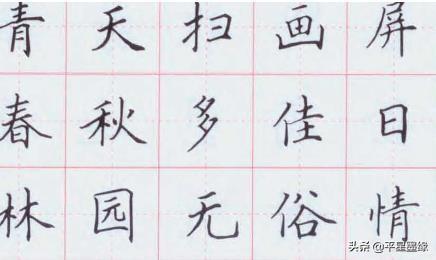 青天扫画屏
春秋多佳日
林园无俗情
头条 @平星墨缘